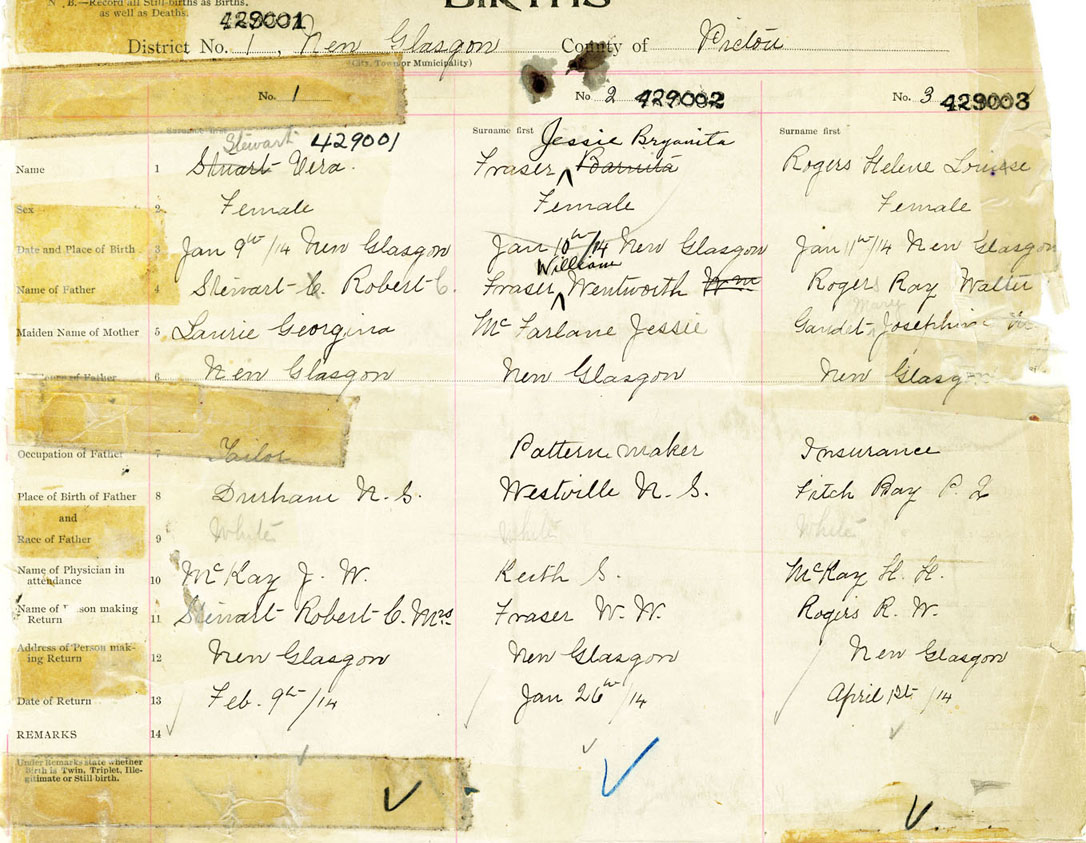 N. B.—Record all Still-births as Births,
as well as Deaths.
BIRTHS
429001
District No. 1, New Glasgow County of Pictou
(City, Town or Municipality)
No. 1 No 2 429002 No. 3 429003
Surname first Surname first Surname first
Stewart 429001 Jessie Bryanita
Name 1 Stuart Vera. Fraser, Barnita Rogers Helene Louise
Sex 2 Female Female Female
Date and Place of Birth 3 Jan 9th/14 New Glasgow Jan 10th/14 New Glasgow Jan 11th/14 New Glasgow
William
Name of Father 4 Stewart C. Robert C. Fraser, Wentworth Wm Rogers Ray Walter
Mary
Maiden Name of Mother 5 Laurie Georgina McFarlane Jessie Gaudet Josephine
of Father 6 New Glasgow New Glasgow New Glasgow
Occupation of Father 7 Tailor Pattern maker Insurance
Place of Birth of Father 8 Durham N. S. Westville N. S. Fitch Bay P. Q
and
Race of Father 9 White White White
Name of Physician in
attendance 10 McKay J. W. Keith S. McKay H. H.
Name of Person making
Return 11 Stewart Robert C. Mrs Fraser W. W. Rogers R. W.
Address of Person mak-
ing Return 12 New Glasgow New Glasgow New Glasgow
Date of Return 13 Feb. 9th/14 Jan 26th/14 April 1st/14
REMARKS 14
Under Remarks state whether
Birth is Twin, Triplet, Ille-
gitimate or Still-birth.